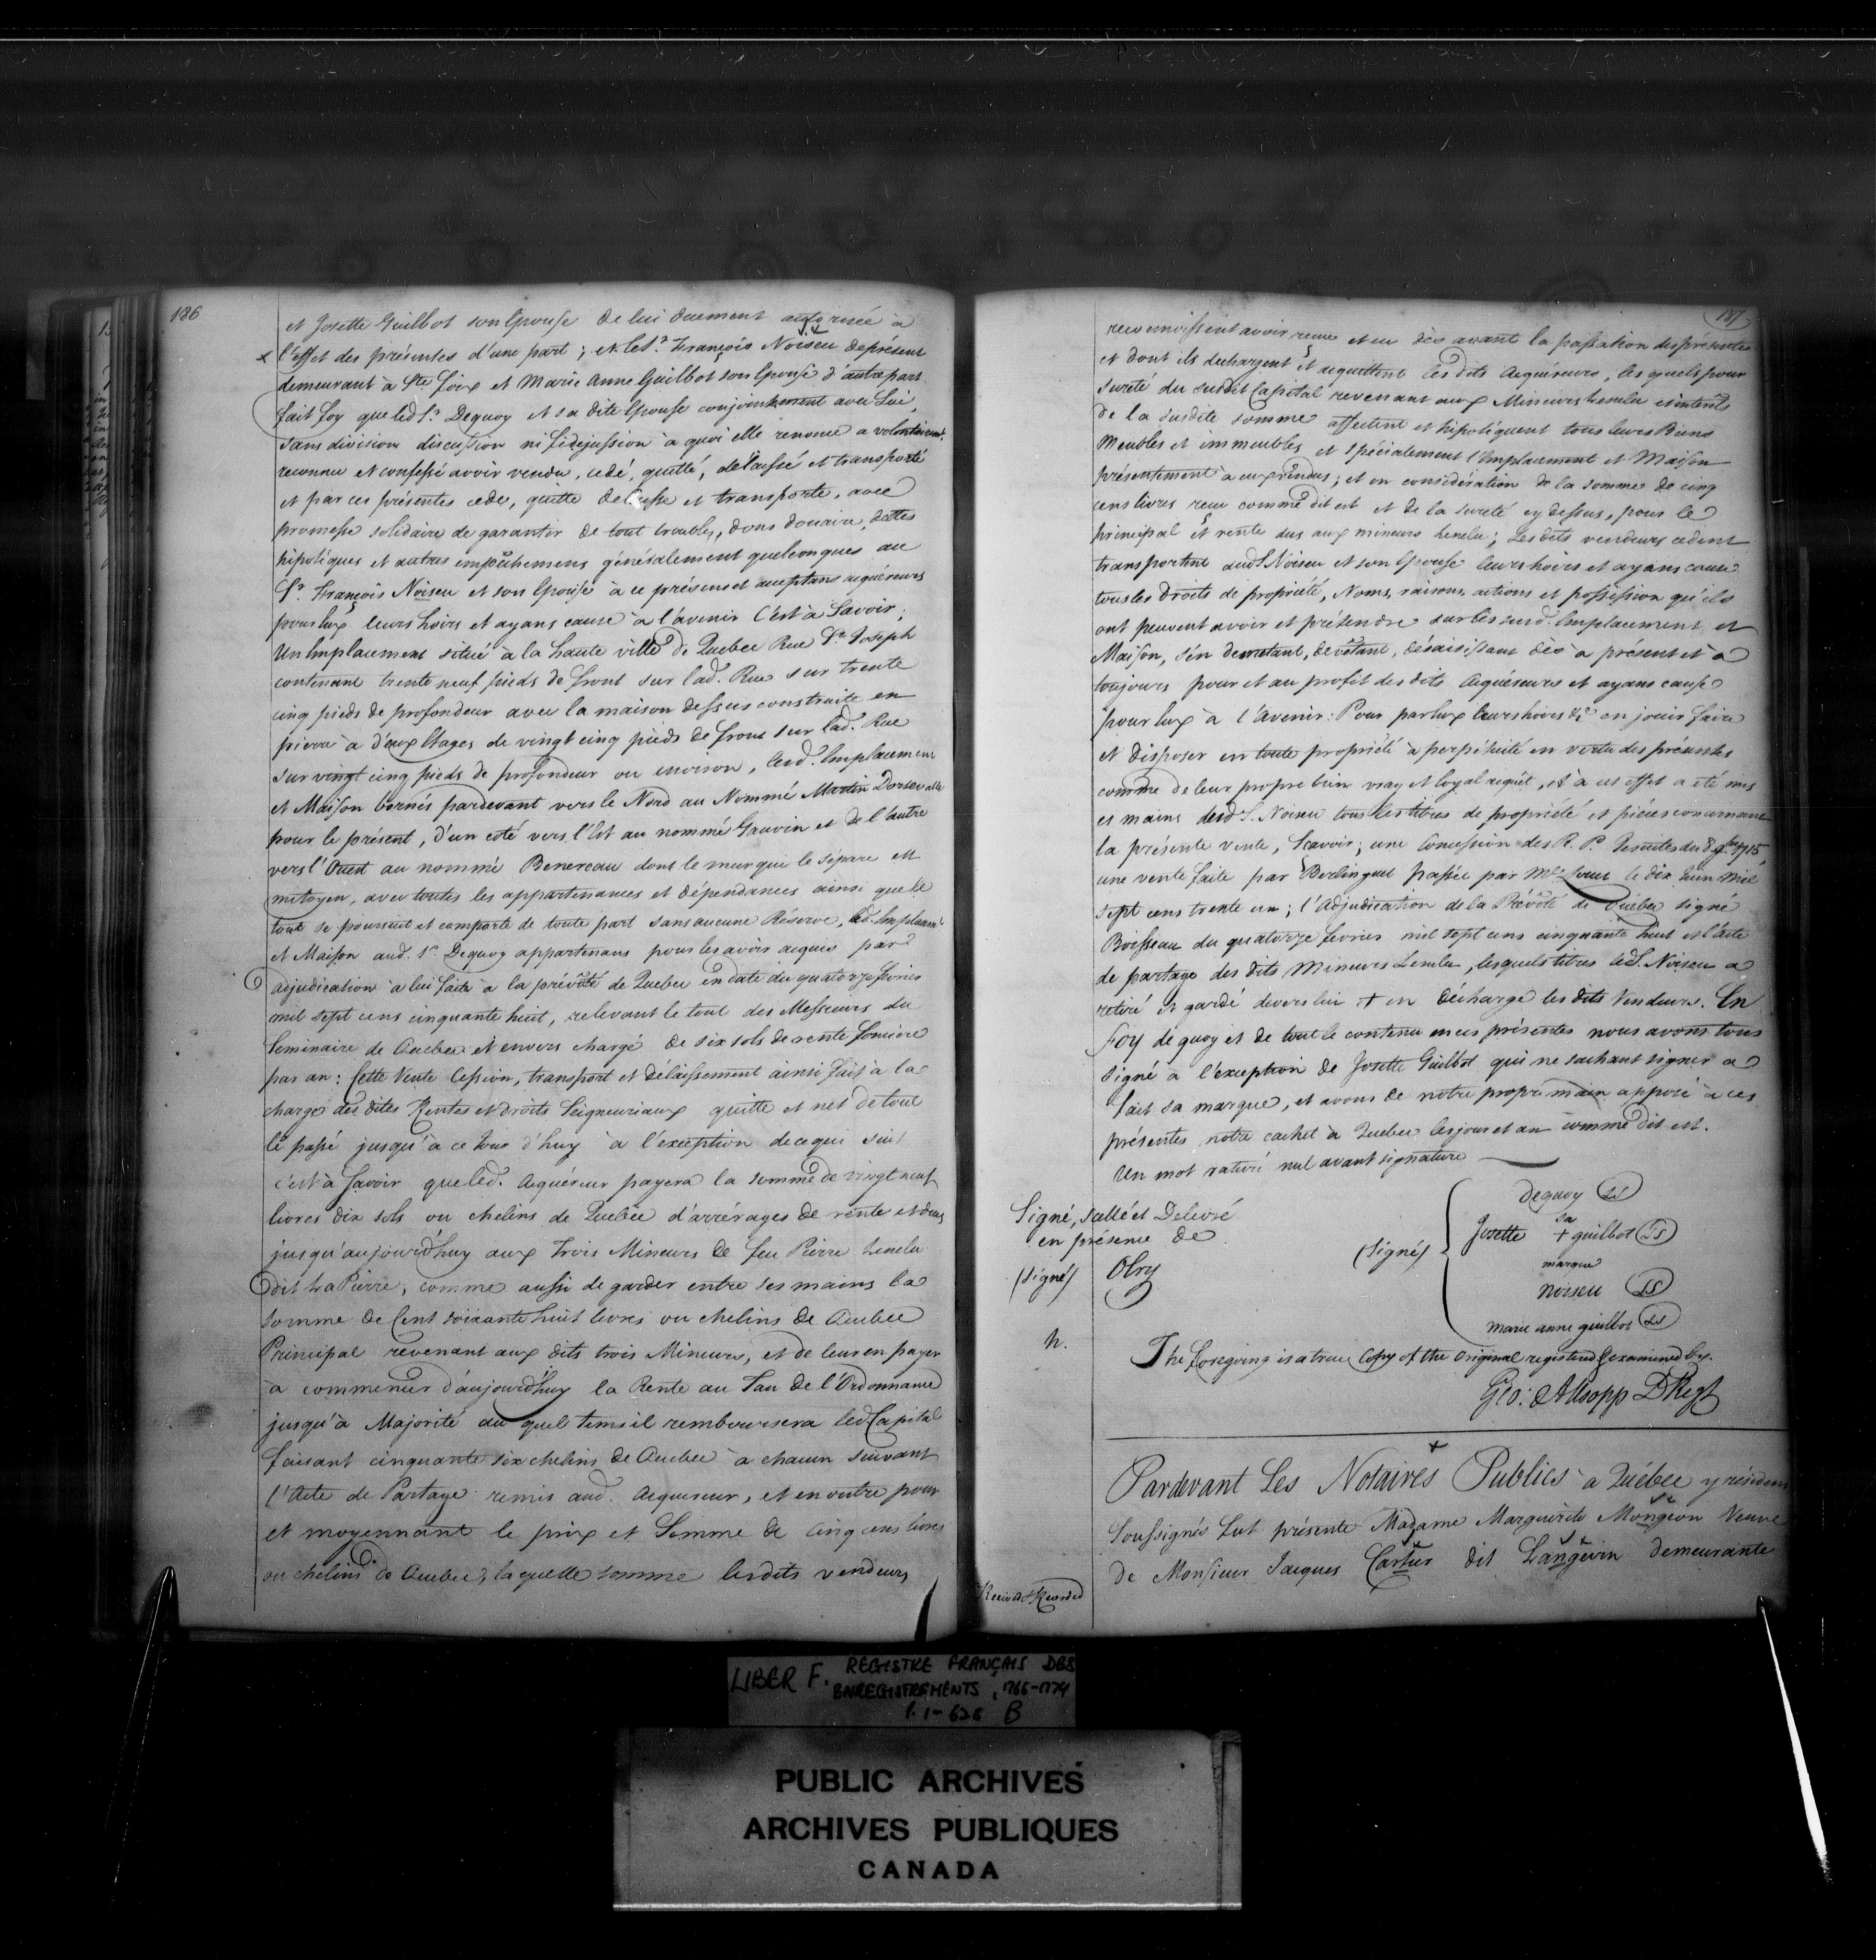 186
et Josette Guilbot son Epouse de lui duement autorisée à
x l'effet des présentes d'une part; et le Sr. François Noiseu de présent
demeurant à Ste. Foix et Marie Anne Guilbot son Epouse d'autre part.
fait foy que led Sr. Dequoy et sa dite Epouse conjointement avec Lui,
sans division discution ni fidejussion à quoi elle renonce a volontairemt.
reconnu et confessé avoir vendu, cedé, quitté, délaissé et transporté
et par ces présentes cede, quitte delaisse et transporte, avec
promesse solidaire de garantir de tout troubles, dons douaire, dettes
hipotéques et autres empêchemens généralement quelconques au
Sr. François Noiseu et son Epouse à ce présens et acceptans acquéreurs
pour Eux leurs hoirs et ayans cause à l'avenir C'est à Savoir;
Un Emplacement situé à la haute ville de Quebec Rue St. Joseph
contenant trente neuf pieds de front sur lad. Rue sur trente
cinq pieds de profondeur avec la maison dessus construite en
pierre à d'eux Etages de vingt cinq pieds de front sur lad. Rue
sur vingt cinq pieds de profondeur ou environ, lesd. Emplacement
et Maison bornés pardevant vers le Nord au Nommé Martin Dorsevalle
pour le présent, d'un coté vers l'Est au nommé Gauvin et de l'autre
vers l'Ouest au nommé Benereau dont le mur qui le sépare est
mitoyen, avec toutes les appartenances et dépendances ainsi que le
tout se poursuit et comporte de toute part sans aucune Réserve, led. Emplacemt.
et Maison aud. Sr. Dequoy appartenans pour les avoir acquis par
adjudication à lui faite à la prévôté de Quebec en date du quatorze fevrier
mil sept cens cinquante huit, relevant le tout des Messieurs du
Seminaire de Quebec et envers chargé de six sols de rente fonciere
par an: Cette Vente Cession, transport et délaissement ainsi fait à la
charge des dites Rentes et droits Seigneuriaux quitte et net de tout
le passé jusqu'à ce Jour d'huy à l'exception de ce qui suit
c'est à Savoir que led. Acquéreur payera la somme de vingt neuf
livres dix sols ou chelins de Quebec d'arrérages de rente et dues
jusqu'aujourd'huy aux trois Mineurs de feu Pierre Lemelu
dit La Pierre, comme aussi de garder entre ses mains la
somme de Cent soixante huit livres ou chelins de Quebec
Principal revenant aux dits trois Mineurs, et de leur en payer
à commencer d'aujourd'huy la Rente au Tau de l'Ordonnance
jusqu'à Majorité au quel tems il remboursera led Capital
faisant cinquante six chelins de Quebec à chacun suivant
l'Acte de Partage remis aud. Acquereur, et en outre pour
et moyennant le prix et Somme de Cinq cens livres
ou chelins de Quebec, la quelle somme lesdits vendeurs
187
reconnoissent avoir recue et eu dès avant la passation des présentes
et dont ils dechargent et acquittent les dits Acquéreurs, les quels pour
Sureté du susdit Capital revenant aux Mineurs Lemelu et interêts
de la susdite somme affectent et hipotéquent tous leurs Biens
Meubles et immeubles, et spécialement l'Emplacement et Maison
présentement à eux vendus; et en considération de la somme de cinq
cens livres recu comme dit est et de la sureté cy dessus, pour le
principal et rente dus aux mineurs Lemelu; Les dits vendeurs cedent
transportent aud. Noiseu et son Epouse leurs hoirs et ayans cause
tous les droits de propriété, Noms, raisons, actions et possession qu'ils
ont peuvent avoir et prétendre sur les susd. Emplacement et
Maison, s'en demetant, devêtant, désaisissant dès à présent et à
toujours pour et au profit des dits Acquéreurs et ayans cause
pour Eux à l'avenir: Pour par Eux leurs hoirs &c en jouir faire
et disposer en toute propriété à perpétuité en vertu des présentes
comme de leur propre bien vray et loyal acquêt, et à cet effet a été mis
es mains dud S. Noiseu tous les titres de propriété et piéces concernant
la présente vente, Scavoir; une Concession des R. P. Jesuites du 8 9bre 1715,
une vente faite par Berlinguet passée par Me. Louet le dix Juin mil
sept cens trente un; l'Adjudication de la Prévôté de Québec signé
Boisseau du quatorze fevrier mil sept cens cinquante huit et l'acte
de partage des dits Mineurs Lemelu, lesquels titres led. S. Noiseu a
retiré et gardé devers lui et en décharge les dits Vendeurs. En
foy de quoy et de tout le contenu en ces présentes nous avons tous
signé à l'exception de Josette Guilbot qui ne sachant signer a
fait sa marque, et avons de notre propre main apposé à ces
présentes notre cachet à Quebec les jour et an comme dit est.
Un mot raturé nul avant signature
Signé, scellé et Delivré
en présence de
(signé) Olry
(Signé)
Dequoy LS
Josette sa + guilbot LS
marque
noiseu LS
marie anne guilbot LS
h.
The foregoing is a true Copy of the Original registered & examined by.
Geo: Allsopp D Regr
Pardevant Les Notaires Publics à Québec y résidens
Soussignés fut présente Madame Marguerite Mongeon Veuve
de Monsieur Jacques Cartier dit Langevin demeurante
Received & Recorded
LIBER F. REGISTRE FRANÇAIS DES
ENREGISTREMENTS, 1766-1774
P. 1-626 B
PUBLIC ARCHIVES
ARCHIVES PUBLIQUES
CANADA